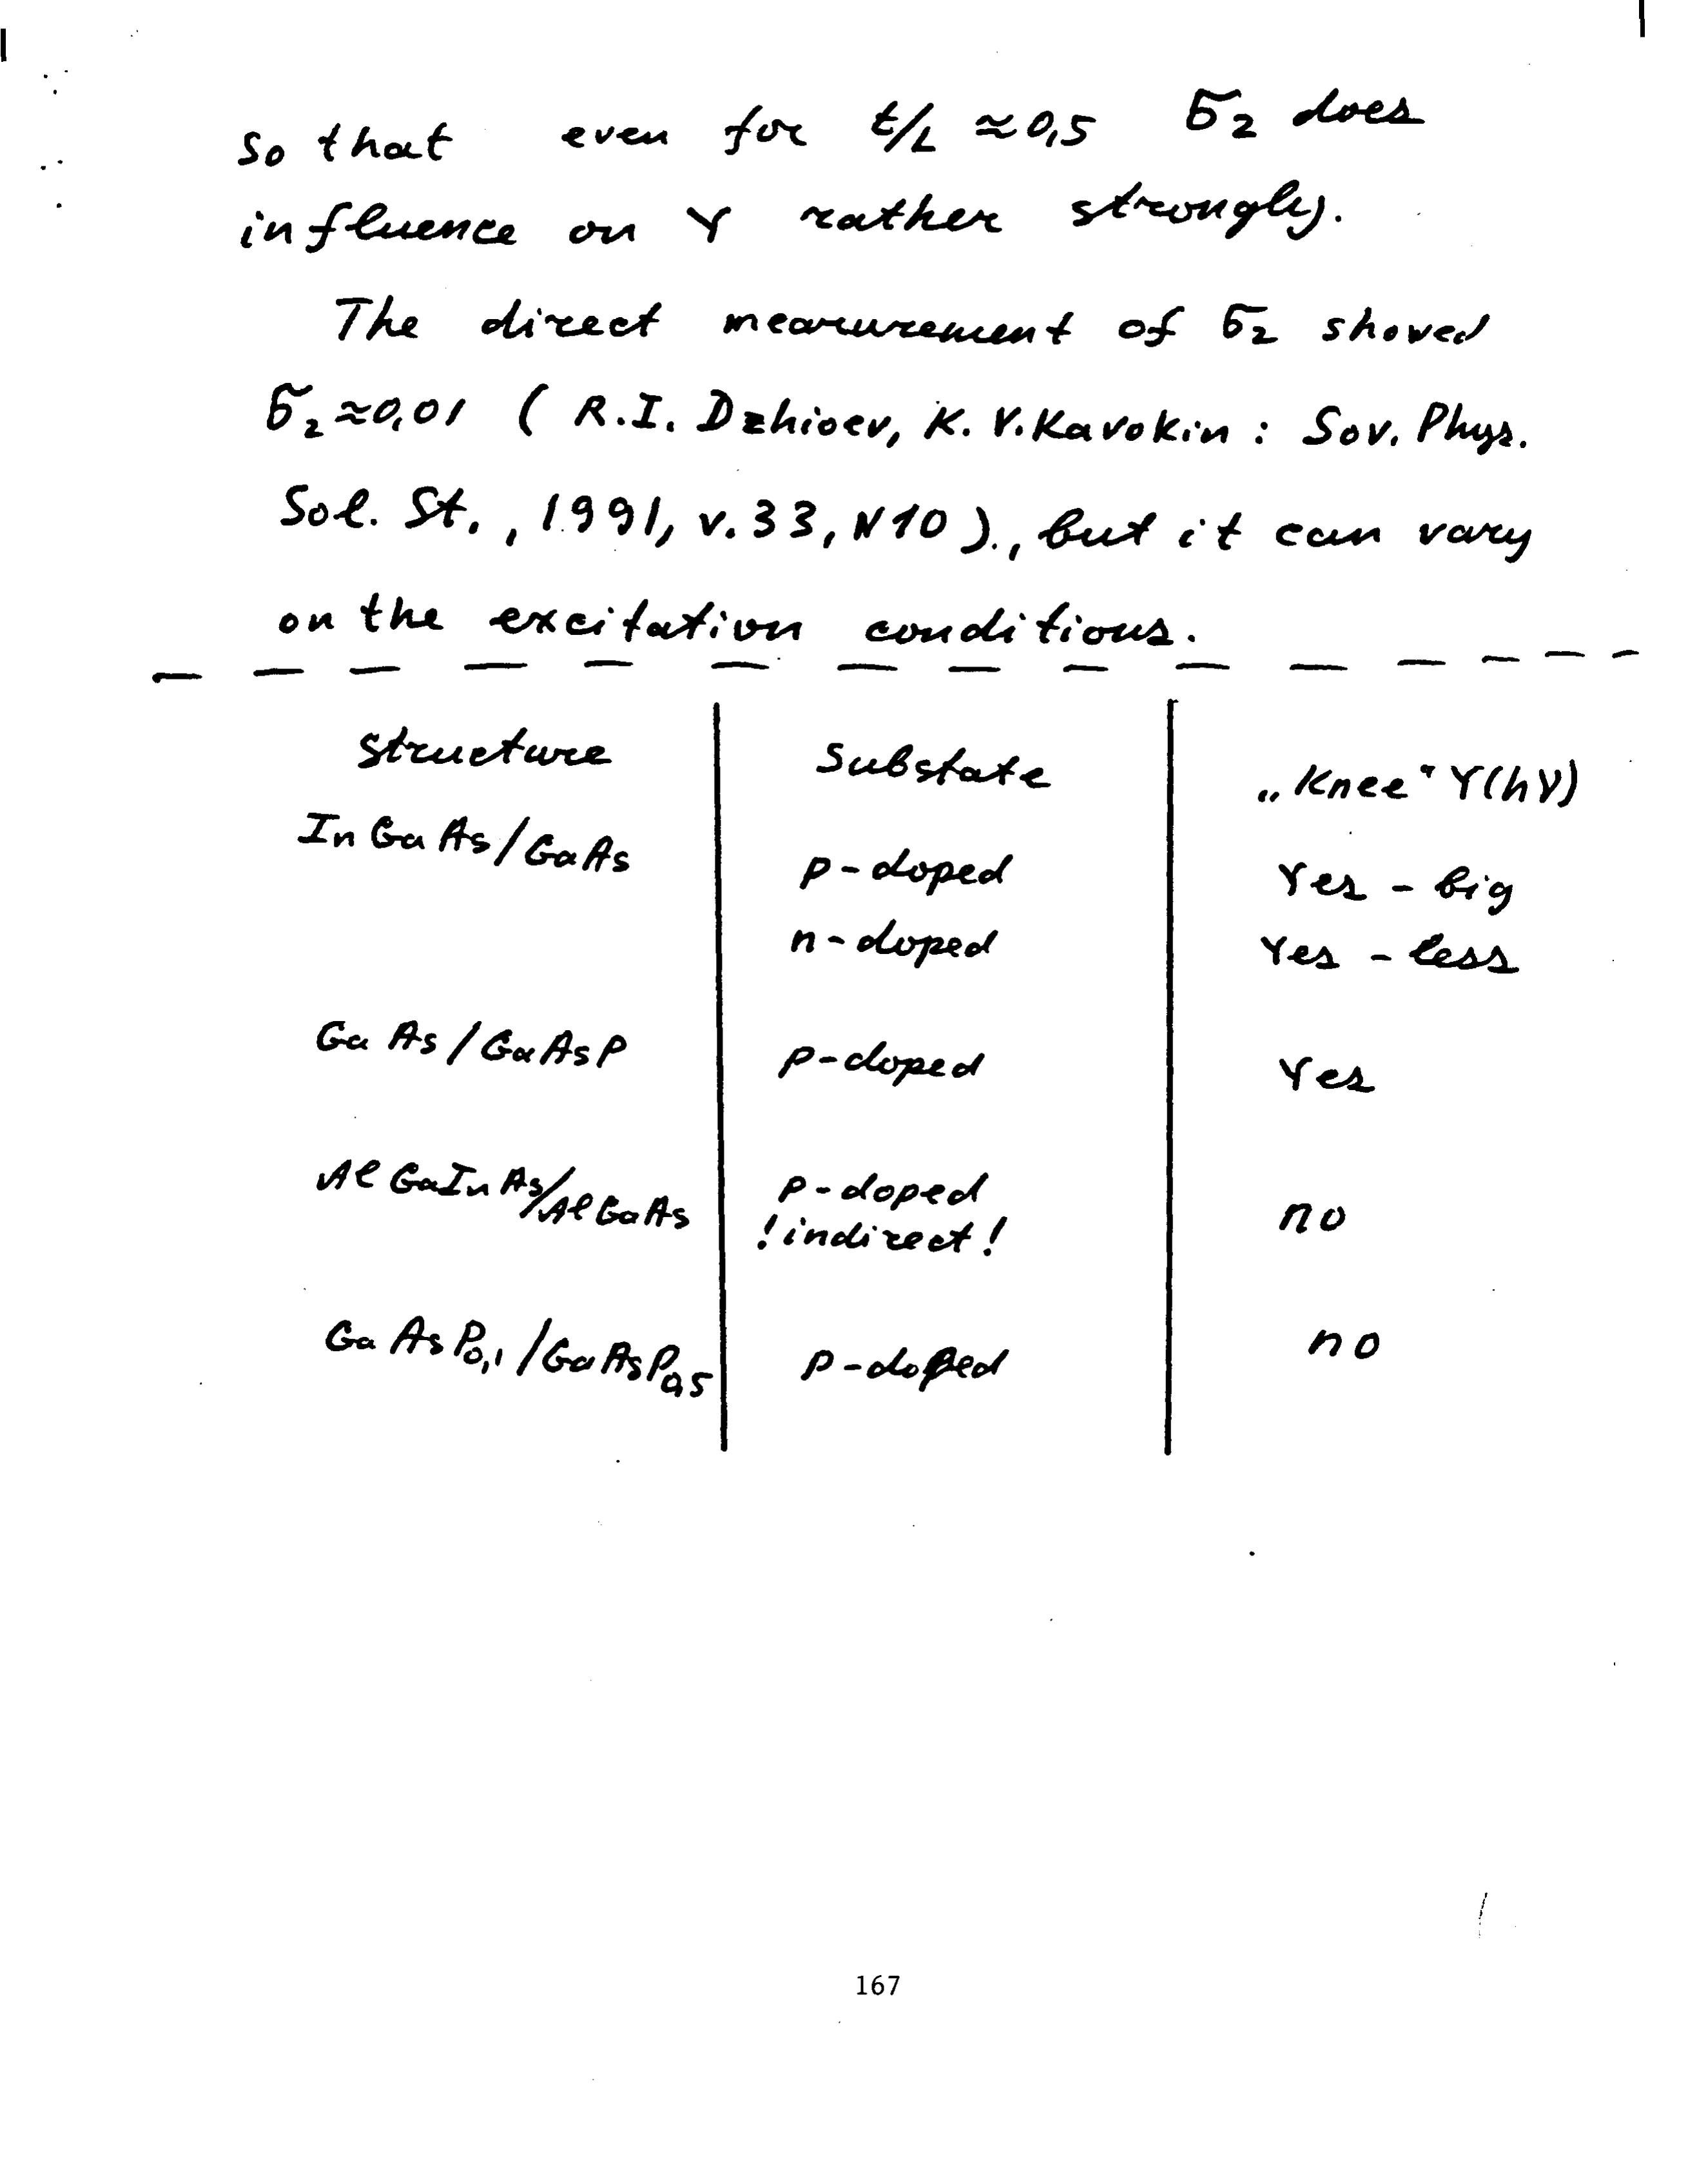 so that even for t/L ≈ 0,5 σ₂ does
influence on Y rather strongly.
The direct measurement of σ₂ shoved
σ₂ ≈ 0,01 ( R.I. Dzhioev, K.V. Kavokin : Sov. Phys.
Sol. St., 1991, v.33, N10 )., but it can vary
on the excitation conditions.
Structure Substate „Knee“ Y(hν)
InGaAs/GaAs p-doped Yes - big
n-doped Yes - less
GaAs/GaAsP p-doped Yes
AlGaInAs/AlGaAs p-doped no
!indirect!
GaAsP₀,₁/GaAsP₀,₅ p-doped no
167